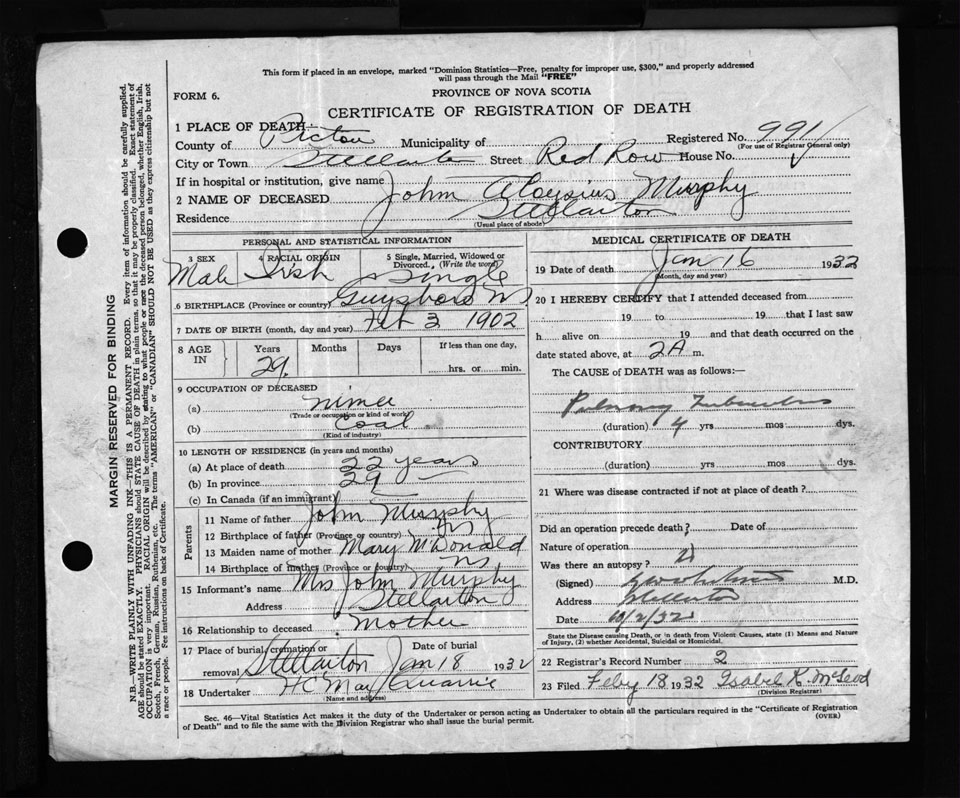 This form if placed in an envelope, marked "Dominion Statistics—Free, penalty for improper use, $300," and properly addressed
will pass through the Mail "FREE"
FORM 6.
PROVINCE OF NOVA SCOTIA
CERTIFICATE OF REGISTRATION OF DEATH
1 PLACE OF DEATH
County of Pictou Municipality of Registered No. 991
(For use of Registrar General only)
City or Town Stellarton Street Red Row House No.
If in hospital or institution, give name
2 NAME OF DECEASED John Aloysius Murphy
Residence Stellarton
(Usual place of abode)
PERSONAL AND STATISTICAL INFORMATION
3 SEX 4 RACIAL ORIGIN 5 Single, Married, Widowed or
Divorced, (Write the word)
Male Irish Single
6 BIRTHPLACE (Province or country) Guysboro NS
7 DATE OF BIRTH (month, day and year) Feb 3 1902
8 AGE IN Years Months Days If less than one day,
29 hrs. or min.
9 OCCUPATION OF DECEASED
(a) miner
(Trade or occupation or kind of work)
(b) Coal
(Kind of industry)
10 LENGTH OF RESIDENCE (in years and months)
(a) At place of death 22 years
(b) In province 29
(c) In Canada (if an immigrant)
Parents
11 Name of father John Murphy
12 Birthplace of father (Province or country) NS
13 Maiden name of mother Mary McDonald
14 Birthplace of mother (Province or country) NS
15 Informant's name Mrs John Murphy
Address Stellarton
16 Relationship to deceased Mother
17 Place of burial, cremation or Date of burial
removal Stellarton Jan 18 1932
18 Undertaker H C
(Name and address)
MEDICAL CERTIFICATE OF DEATH
19 Date of death Jan 16 1932
(Month, day and year)
20 I HEREBY CERTIFY that I attended deceased from
19 to 19 that I last saw
h alive on 19 and that death occurred on the
date stated above, at 2A m.
The CAUSE of DEATH was as follows:—
Pulmonary Tuberculosis
(duration) 4 yrs mos dys.
CONTRIBUTORY
(duration) yrs mos dys.
21 Where was disease contracted if not at place of death?
Did an operation precede death? Date of
Nature of operation
Was there an autopsy?
(Signed) M.D.
Address Stellarton
Date 10/2/32
State the Disease causing Death, or in death from Violent Causes, state (1) Means and Nature
of Injury, (2) whether Accidental, Suicidal or Homicidal.
22 Registrar's Record Number 2
23 Filed Feby 18 1932 Isabel K. McLeod
(Division Registrar)
Sec. 46—Vital Statistics Act makes it the duty of the Undertaker or person acting as Undertaker to obtain all the particulars required in the "Certificate of Registration
of Death" and to file the same with the Division Registrar who shall issue the burial permit.
(OVER)
MARGIN RESERVED FOR BINDING
N.B.—WRITE PLAINLY WITH UNFADING INK—THIS IS A PERMANENT RECORD. Every item of information should be carefully supplied.
AGE should be stated EXACTLY. PHYSICIANS should STATE CAUSE OF DEATH in plain terms, so that it may be properly classified. Exact statement of
OCCUPATION is very important. RACIAL ORIGIN will be described by stating to what people or race the deceased person belonged, whether English, Irish,
Scotch, French, German, Russian, Ruthenian, etc. The terms "AMERICAN" or "CANADIAN" SHOULD NOT BE USED as they express citizenship but not
a race or people. See instructions on back of Certificate.